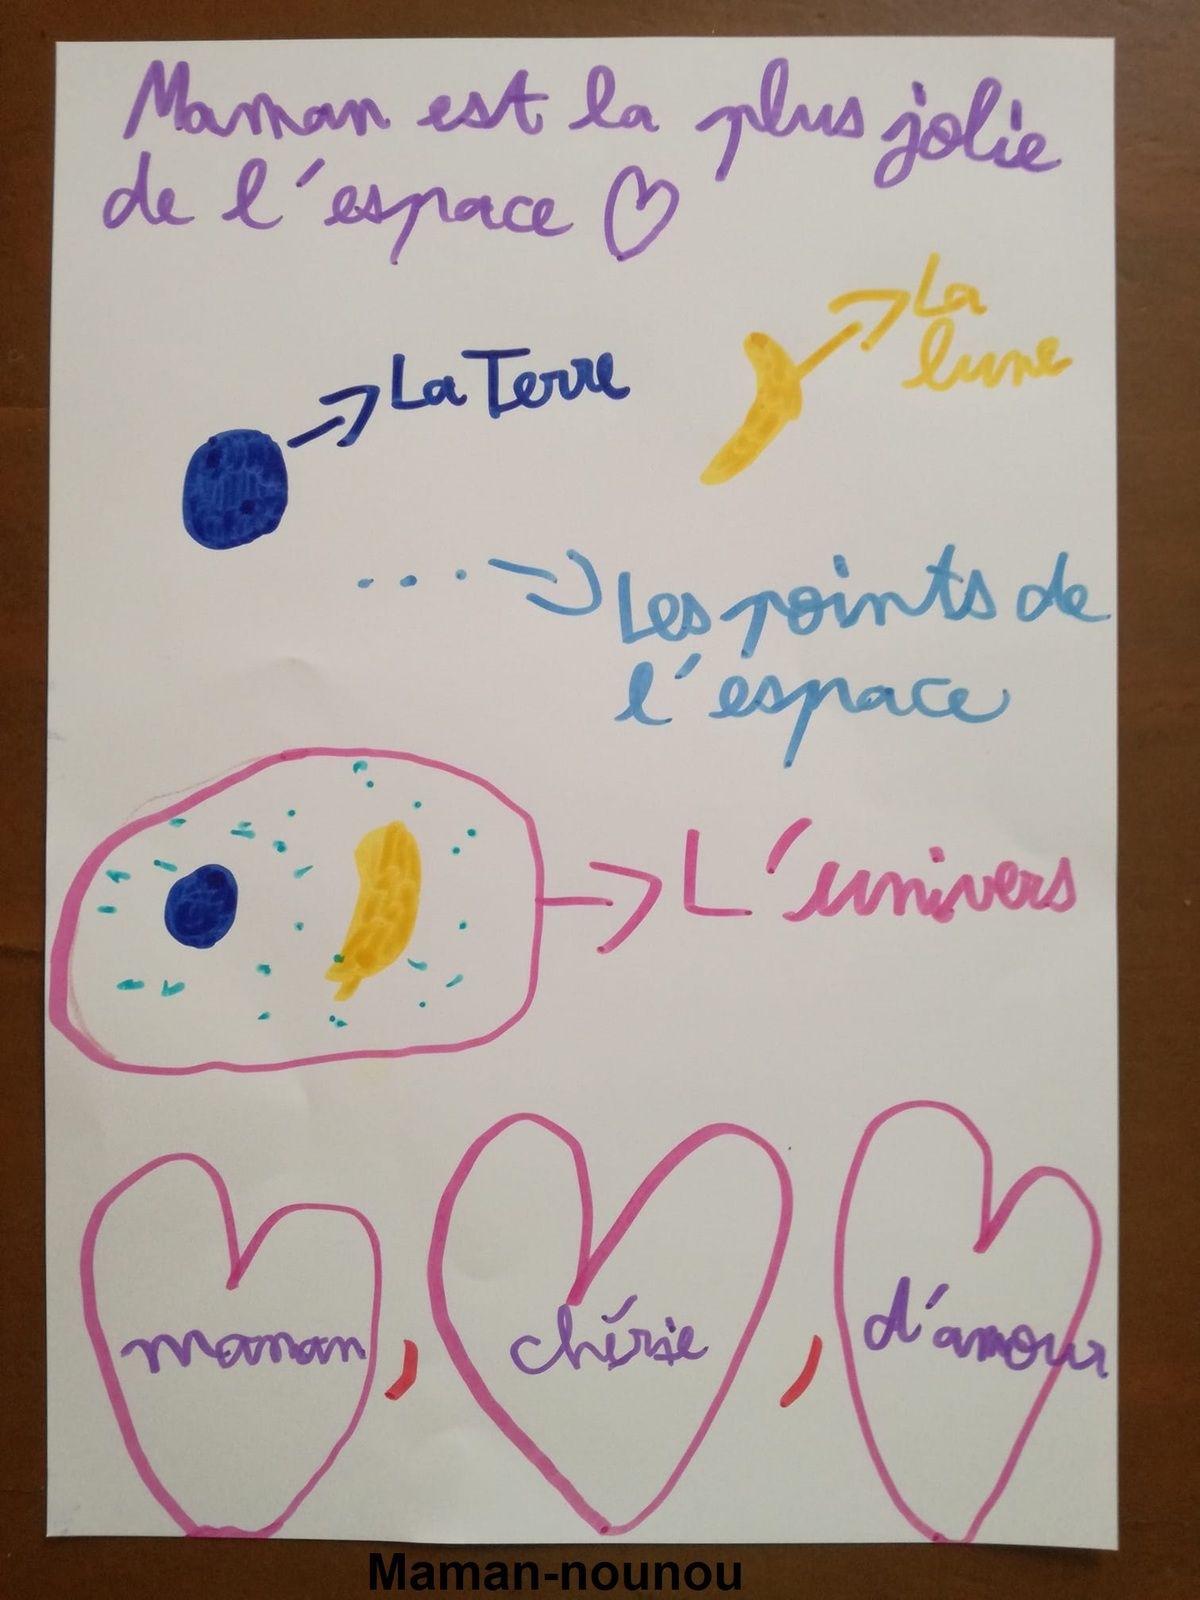 Maman est la plus jolie
de l'espace
La
lune
La Terre
Les points de
l'espace
L'univers
maman, chérie, d'amour
Maman-nounou